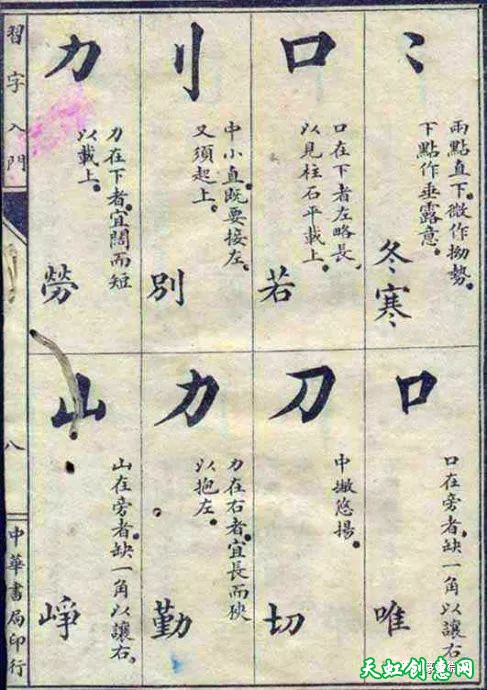 冫
兩點直下。微作拗勢。
下點作垂露意。
冬寒
口
口在下者左略長。
以見柱石平載上。
若
刂
中小直既要接左。
又須起上。
別
力
力在下者。宜闊而短
以載上。
勞
口
口在旁者。缺一角以讓右。
唯
刀
中撇悠揚。
切
力
力在右者。宜長而狹
以抱左。
勤
山
山在旁者。缺一角以讓右。
崢
習字入門
八
中華書局印行
天虹创意网